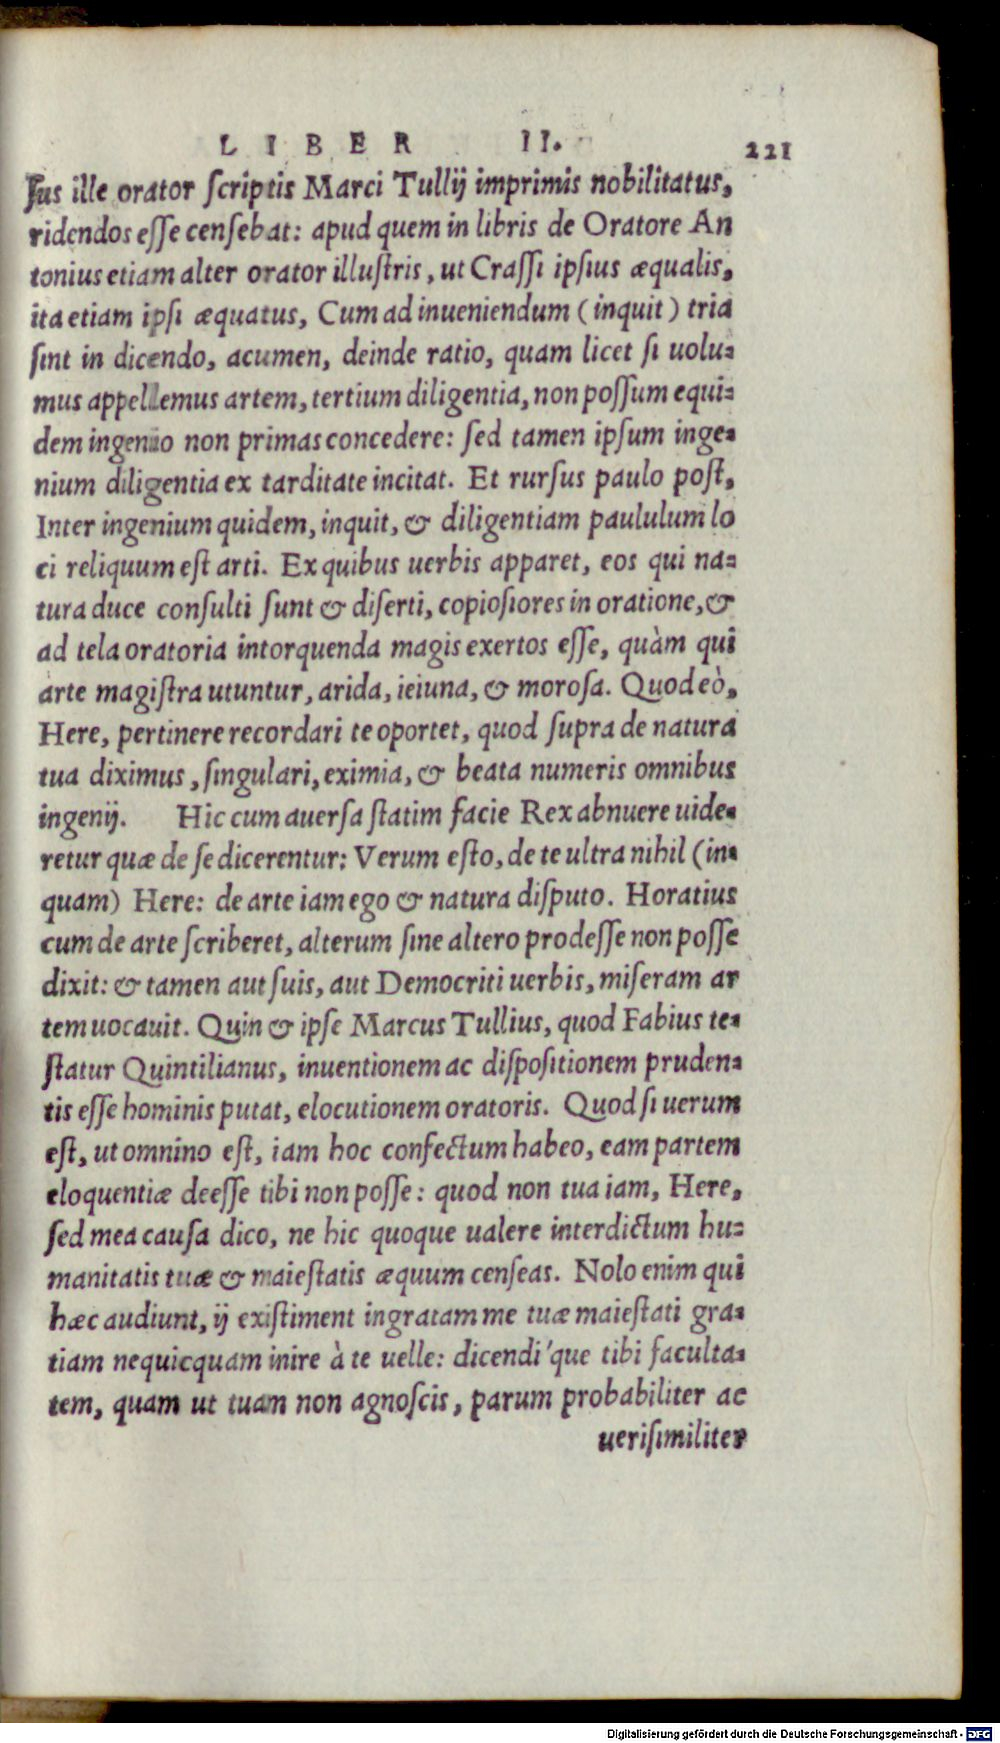 LIBER II. 221
ſus ille orator ſcriptis Marci Tullij imprimis nobilitatus,
ridendos eſſe cenſebat: apud quem in libris de Oratore An
tonius etiam alter orator illuſtris, ut Craſſi ipſius æqualis,
ita etiam ipſi æquatus, Cum ad inueniendum (inquit) tria
ſint in dicendo, acumen, deinde ratio, quam licet ſi uolu⸗
mus appellemus artem, tertium diligentia, non poſſum equi⸗
dem ingenio non primas concedere: ſed tamen ipſum inge⸗
nium diligentia ex tarditate incitat. Et rurſus paulo poſt,
Inter ingenium quidem, inquit, & diligentiam paululum lo
ci reliquum eſt arti. Ex quibus uerbis apparet, eos qui na⸗
tura duce conſulti ſunt & diſerti, copioſiores in oratione, &
ad tela oratoria intorquenda magis exertos eſſe, quàm qui
arte magiſtra utuntur, arida, ieiuna, & moroſa. Quod eò,
Here, pertinere recordari te oportet, quod ſupra de natura
tua diximus, ſingulari, eximia, & beata numeris omnibus
ingenij. Hic cum auerſa ſtatim facie Rex abnuere uide⸗
retur quæ de ſe dicerentur: Verum eſto, de te ultra nihil (in⸗
quam) Here: de arte iam ego & natura diſputo. Horatius
cum de arte ſcriberet, alterum ſine altero prodeſſe non poſſe
dixit: & tamen aut ſuis, aut Democriti uerbis, miſeram ar
tem uocauit. Quin & ipſe Marcus Tullius, quod Fabius te⸗
ſtatur Quintilianus, inuentionem ac diſpoſitionem pruden⸗
tis eſſe hominis putat, elocutionem oratoris. Quod ſi uerum
eſt, ut omnino eſt, iam hoc confectum habeo, eam partem
eloquentiæ deeſſe tibi non poſſe: quod non tua iam, Here,
ſed mea cauſa dico, ne hic quoque ualere interdictum hu⸗
manitatis tuæ & maieſtatis æquum cenſeas. Nolo enim qui
hæc audiunt, ij exiſtiment ingratam me tuæ maieſtati gra⸗
tiam nequicquam inire à te uelle: dicendi´que tibi faculta⸗
tem, quam ut tuam non agnoſcis, parum probabiliter ac
ueriſimiliter
Digitalisierung gefördert durch die Deutsche Forschungsgemeinschaft - DFG